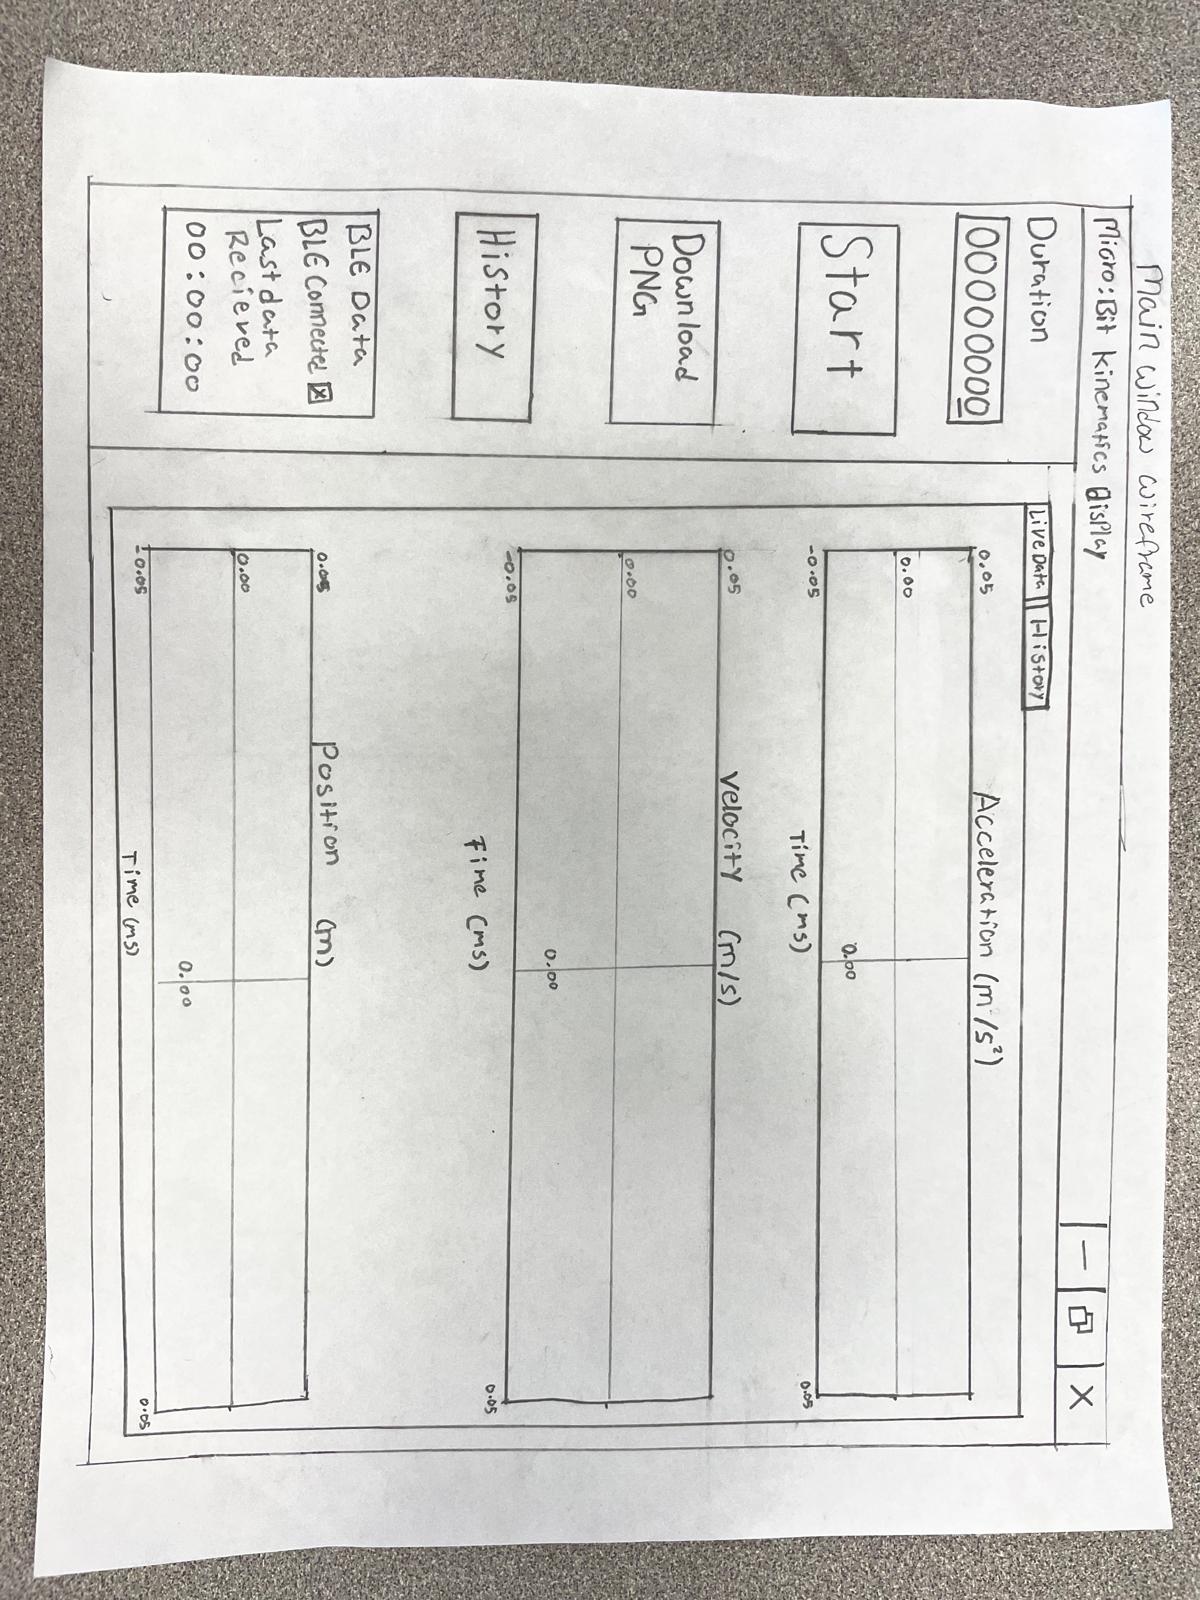 Main Window Wireframe
Micro:Bit Kinematics Display
— X
Duration
00000000
Start
Download
PNG
History
BLE Data
BLE Connected ☒
Last data
Recieved
00:00:00
Live Data History
Acceleration (m/s²)
0.05
0.00
0.00
-0.05
0.05
Time (ms)
Velocity (m/s)
0.05
0.00
0.00
-0.05
0.05
Time (ms)
Position (m)
0.05
0.00
0.00
-0.05
0.05
Time (ms)